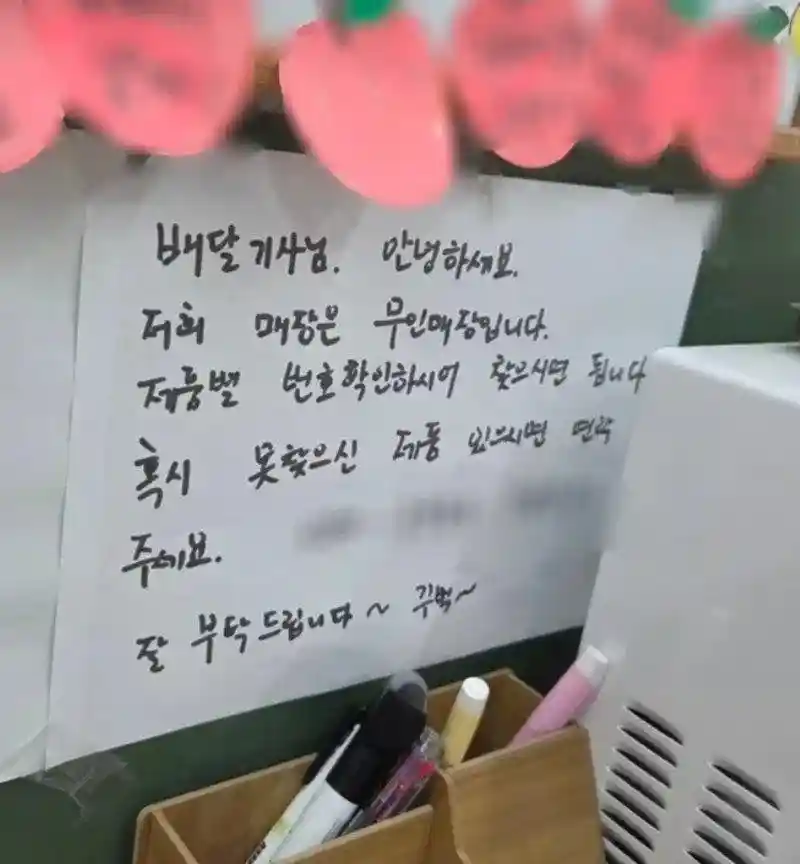 배달기사님. 안녕하세요.
저희 매장은 무인매장입니다.
제품별 번호확인하시어 찾으시면 됩니다
혹시 못찾으신 제품 있으시면 연락
주세요.
잘 부탁드립니다~ 꾸벅~